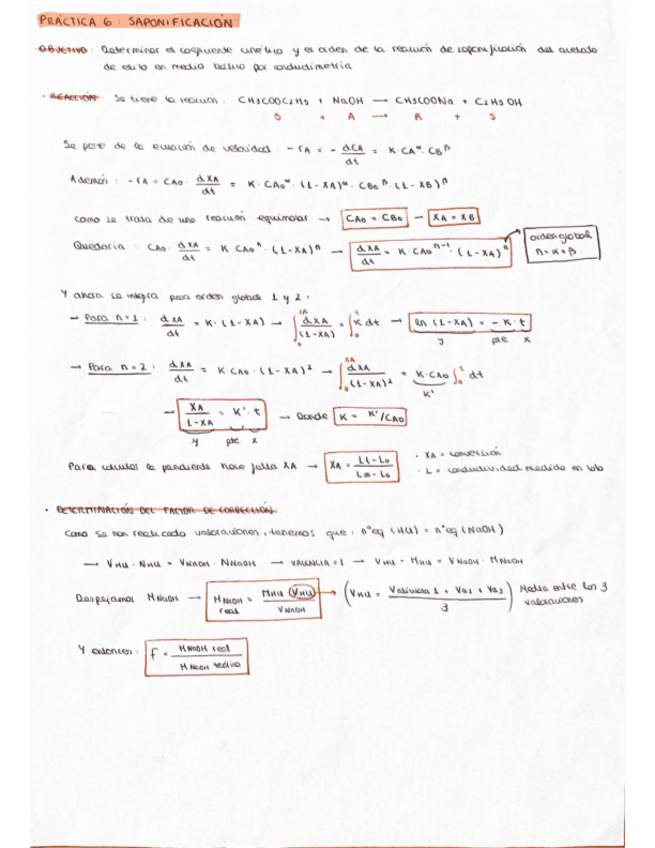 PRÁCTICA 6 : SAPONIFICACIÓN
OBJETIVO : Determinar el coeficiente cinético y el orden de la reacción de saponificación del acetato
de etilo en medio básico por conductimetría
· REACCIÓN : Se tiene la reacción : CH3COOC2H5 + NaOH → CH3COONa + C2H5OH
B + A → R + S
Se parte de la ecuación de velocidad : -rA = - dCA/dt = K · CA^α · CB^β
Además : -rA = CA0 · dXA/dt = K · CA0^α · (1-XA)^α · CB0^β · (1-XB)^β
como se trata de una reacción equimolar → CA0 = CB0 → XA = XB
Quedaría : CA0 · dXA/dt = K CA0^n · (1-XA)^n → dXA/dt = K · CA0^n-1 · (1-XA)^n
orden global
n = α + β
Y ahora se integra para orden global 1 y 2 :
→ Para n=1 : dXA/dt = K · (1-XA) → ∫0^XA dXA/(1-XA) = ∫0^t K dt → ln (1-XA) = - K · t
y pte x
→ Para n=2 : dXA/dt = K · CA0 · (1-XA)^2 → ∫0^XA dXA/(1-XA)^2 = K · CA0 ∫0^t dt
K'
→ XA/1-XA = K' · t → Donde K = K'/CA0
y pte x
Para calcular la pendiente hace falta XA → XA = Lt-L0/L∞-L0
· XA = conversión
· L = conductividad medida en lab
· DETERMINACIÓN DEL FACTOR DE CORRECCIÓN.
Como se han realizado valoraciones, tenemos que : nºeq (HCl) = nºeq (NaOH)
→ VHCl · NHCl = VNaOH · NNaOH → VALENCIA = 1 → VHCl · MHCl = VNaOH · MNaOH
Despejamos MNaOH → MNaOH real = MHCl · VHCl / VNaOH → (VHCl = Valícuota 1 + Va2 + Va3 / 3) Media entre las 3
valoraciones
Y entonces : f = MNaOH real / MNaOH teórico